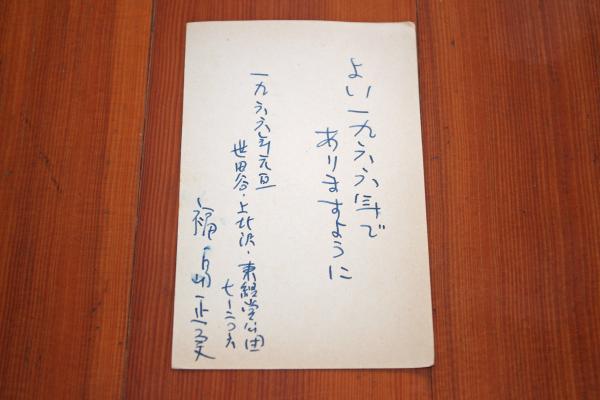 よい一九六六年で
ありますように
一九六六年元旦
世田谷・上北沢・東経堂公団
七ー二〇六
福島正実